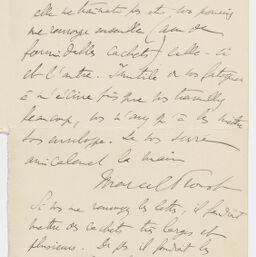 elle ne pas
me renvoyer ensemble (avec de
formidables cachets) celle-ci
et l'autre. Inutile de vous fatiguer
à m'écrire puisque vous travaillez
beaucoup, vous n'avez qu'à les mettre
sous enveloppe. Je vous serre
amicalement la main
Marcel Proust
Si vous me renvoyez les lettres, il faudrait
mettre des cachets très larges et
plusieurs. il faudrait les